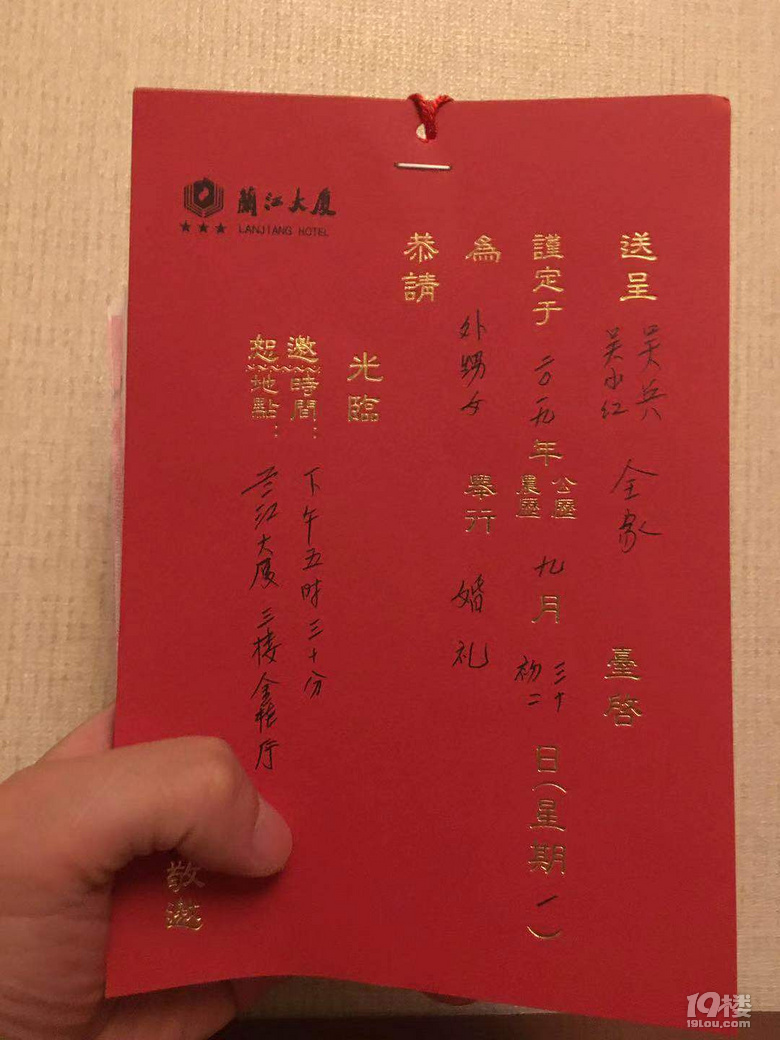 蘭江大厦
LANJIANG HOTEL
送呈 吴兵 吴小红 全家 臺啓
謹定于 二〇一九年 公歷 農歷 九月 三十 初二 日（星期一）
為 外甥女 舉行 婚礼
恭請
光臨
邀 時間：下午五时三十分
恕 地點：兰江大厦 三楼 金 厅
敬邀
19楼
19lou.com